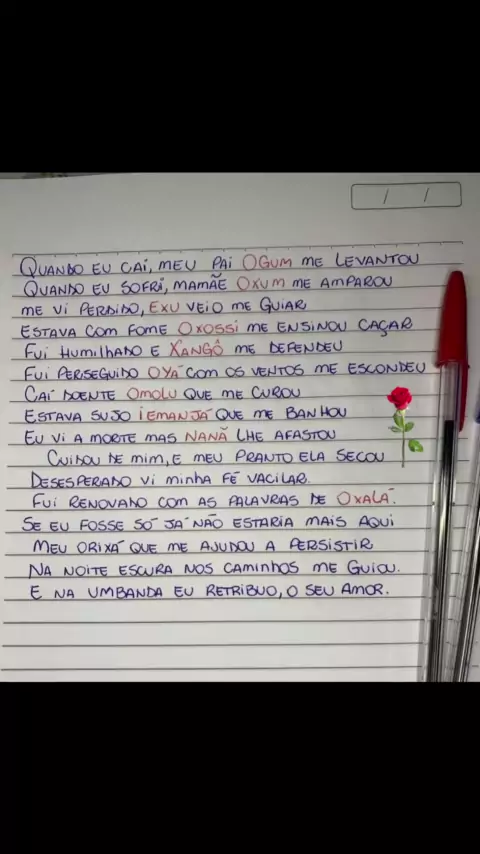 / /
QUANDO EU CAI, MEU PAI OGUM ME LEVANTOU
QUANDO EU SOFRI, MAMÃE OXUM ME AMPAROU
ME VI PERDIDO, EXU VEIO ME GUIAR
ESTAVA COM FOME OXOSSI ME ENSINOU CAÇAR
FUI HUMILHADO E XANGÔ ME DEFENDEU
FUI PERSEGUIDO OYÁ COM OS VENTOS ME ESCONDEU
CAÍ DOENTE OMOLU QUE ME CUROU
ESTAVA SUJO IEMANJÁ QUE ME BANHOU
EU VI A MORTE MAS NANÃ LHE AFASTOU
CUIDOU DE MIM, E MEU PRANTO ELA SECOU
DESESPERADO VI MINHA FÉ VACILAR.
FUI RENOVADO COM AS PALAVRAS DE OXALÁ.
SE EU FOSSE SÓ JÁ NÃO ESTARIA MAIS AQUI
MEU ORIXÁ QUE ME AJUDOU A PERSISTIR
NA NOITE ESCURA NOS CAMINHOS ME GUIOU.
E NA UMBANDA EU RETRIBUO, O SEU AMOR.